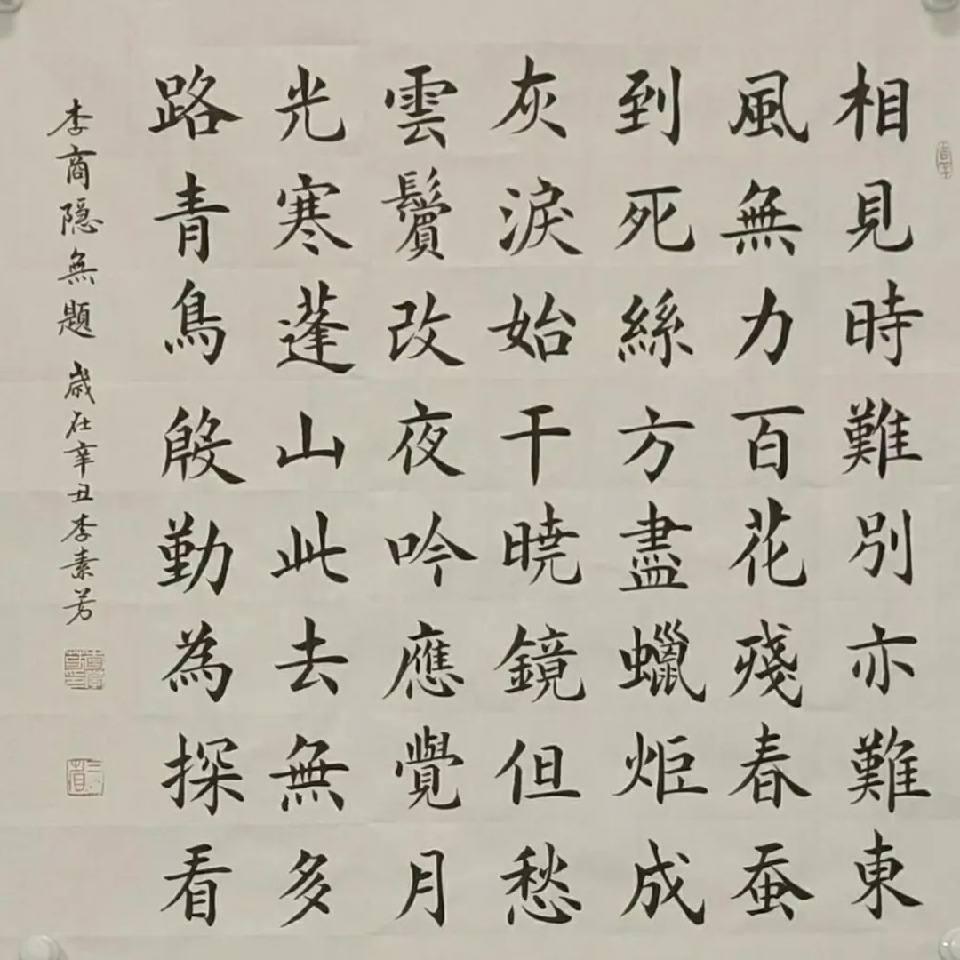 相見時難別亦難東
風無力百花殘春蚕
到死絲方盡蠟炬成
灰淚始干曉鏡但愁
雲鬢改夜吟應覺月
光寒蓬山此去無多
路青鳥殷勤為探看
李商隐無題 歲在辛丑李素芳